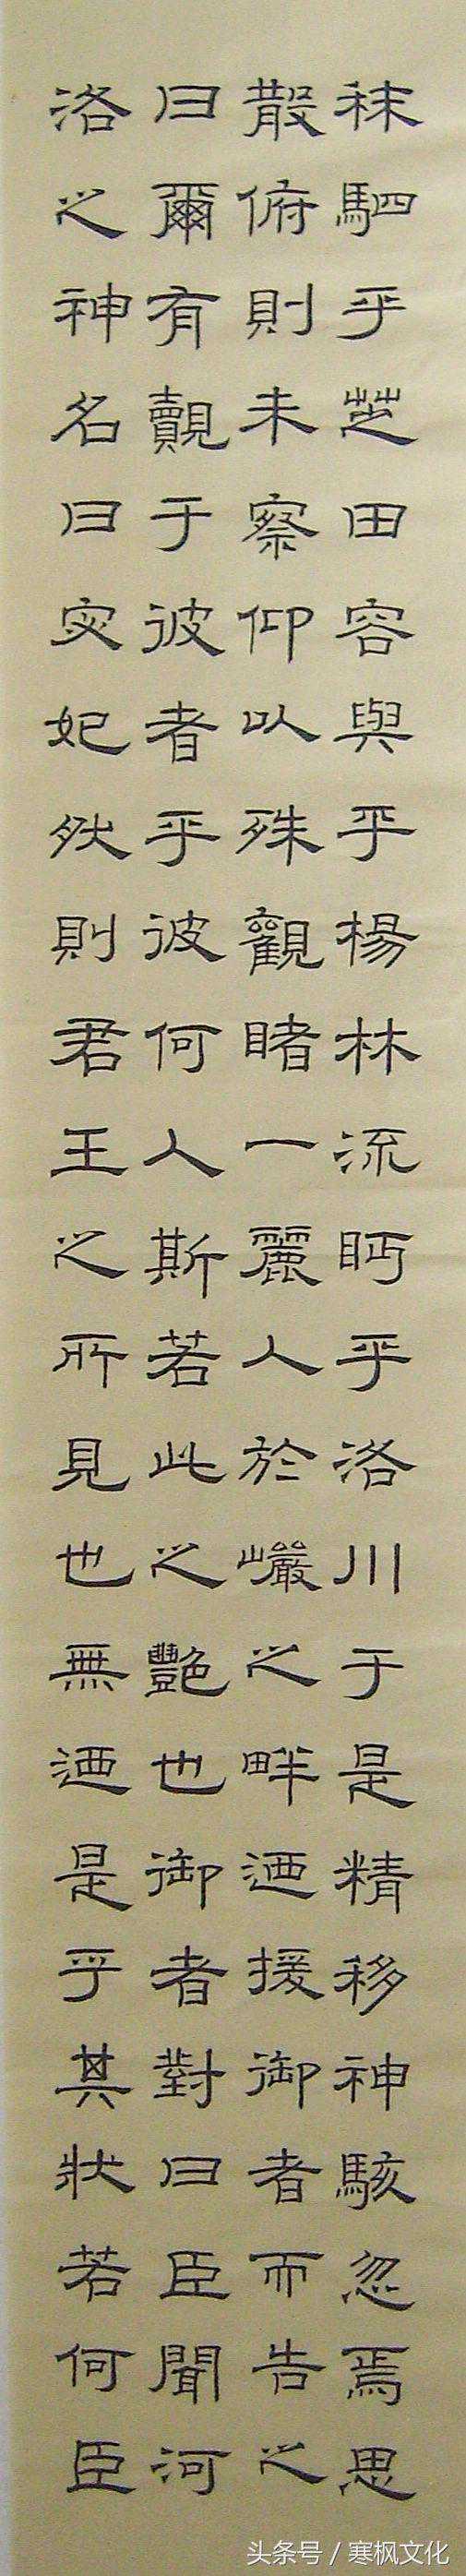 秣駟乎芝田容與乎楊林流眄乎洛川于是精移神駭忽焉思
散俯則未察仰以殊觀睹一麗人於巗之畔迺援御者而告之
曰爾有覿于彼者乎彼何人斯若此之艷也御者對曰臣聞河
洛之神名曰宓妃然則君王之所見也無迺是乎其狀若何臣
头条号 / 寒枫文化